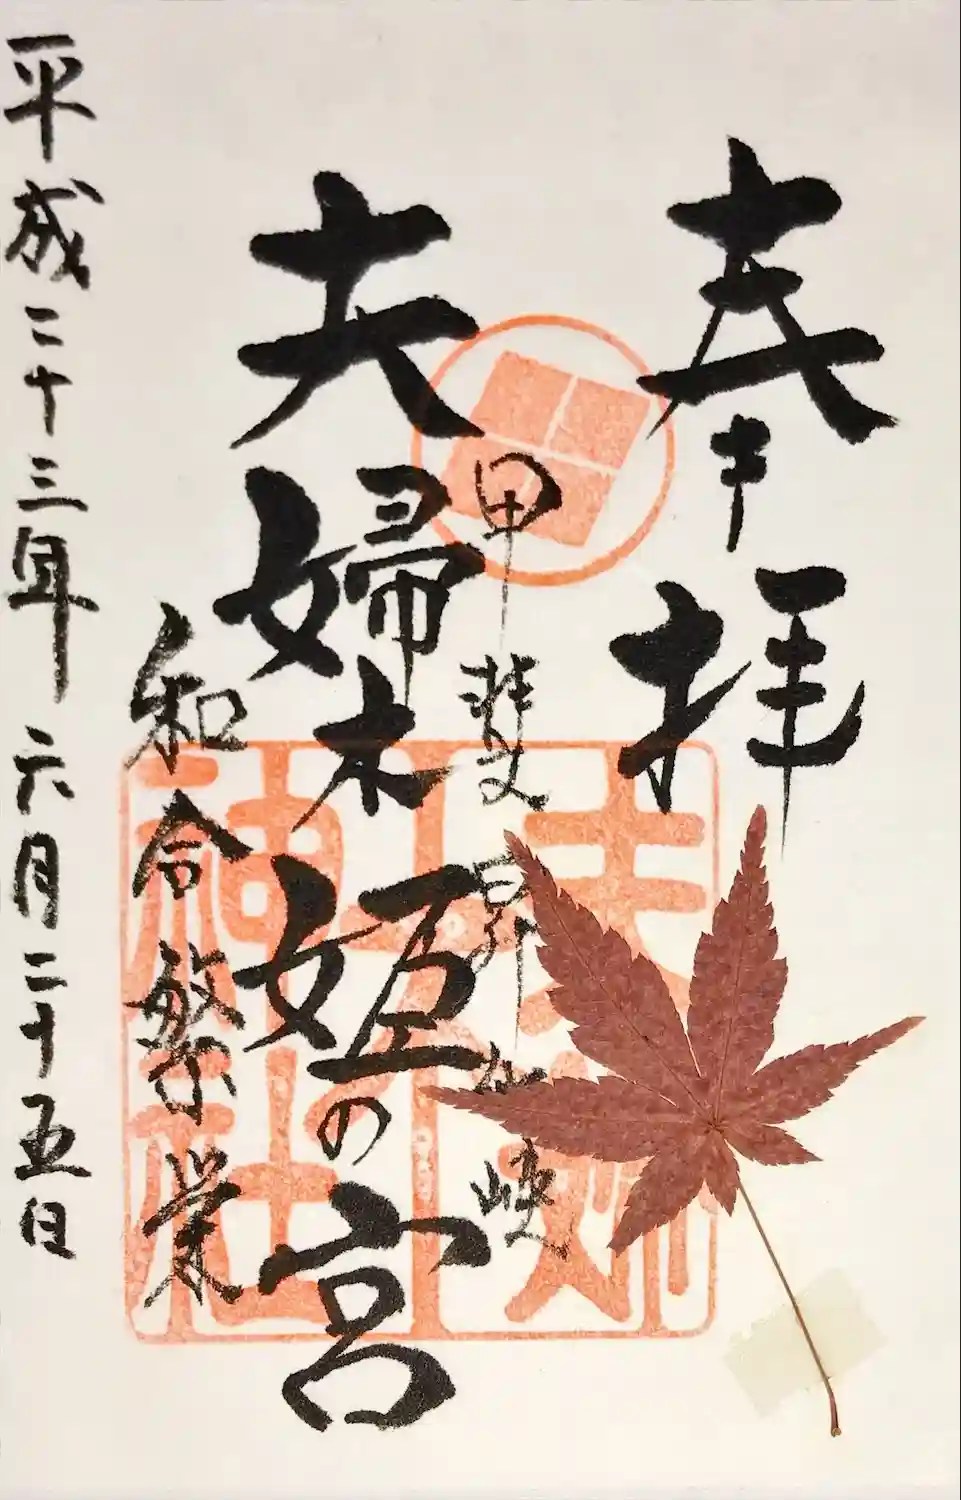 奉拝
甲斐昇仙峡
夫婦木姫の宮
和合繁栄
平成二十三年六月二十五日
夫婦木神社